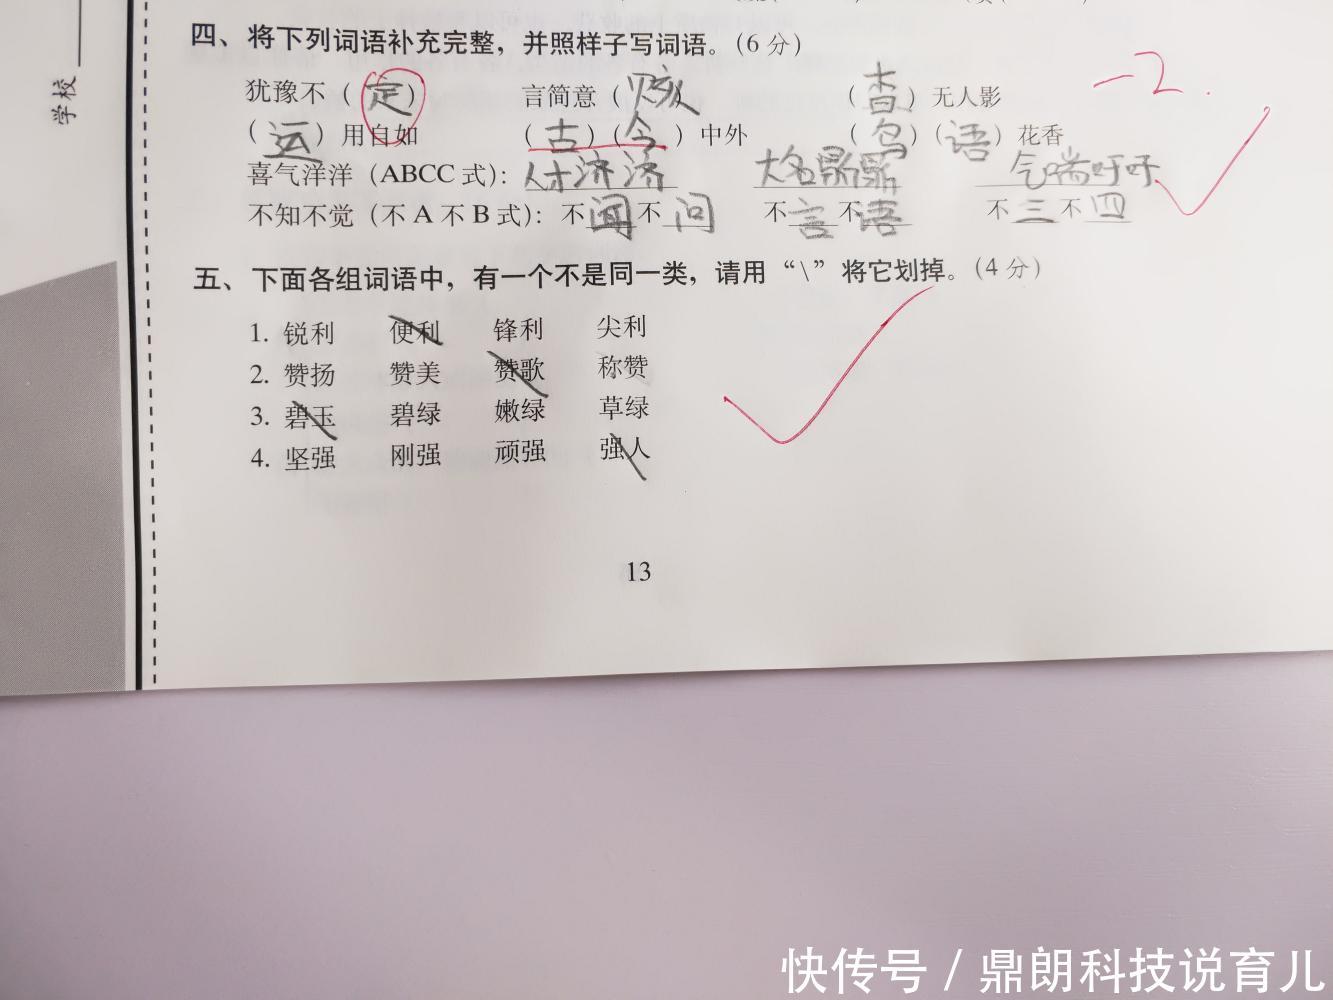 学校
四、将下列词语补充完整，并照样子写词语。（6 分）
-2.
犹豫不（定） 言简意（赅） （杳）无人影
（运）用自如 （古）（今）中外 （鸟）（语）花香
喜气洋洋（ABCC 式）：人才济济 大名鼎鼎 气喘吁吁
不知不觉（不 A 不 B 式）：不闻不问 不言不语 不三不四
五、下面各组词语中，有一个不是同一类，请用“\”将它划掉。（4 分）
1. 锐利 便利 锋利 尖利
2. 赞扬 赞美 赞歌 称赞
3. 碧玉 碧绿 嫩绿 草绿
4. 坚强 刚强 顽强 强人
13
快传号 / 鼎朗科技说育儿